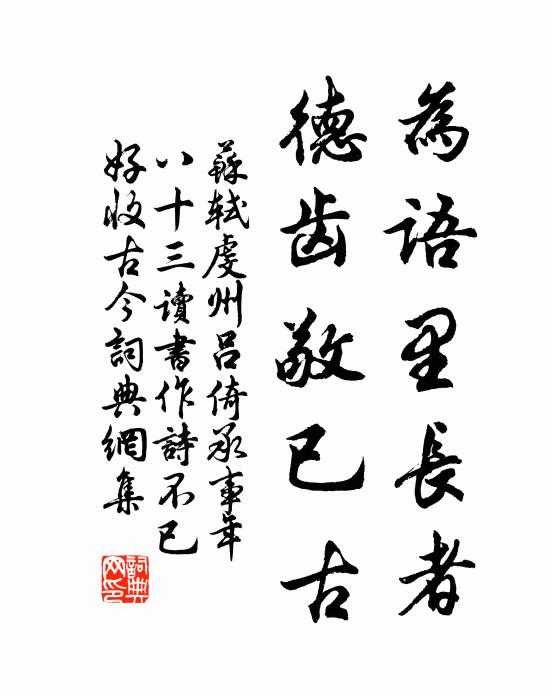 為語里長者
德齿敬已古
蘇軾虔州呂倚承事年
八十三讀書作詩不已
好收古今詞典網集
詞典
网印